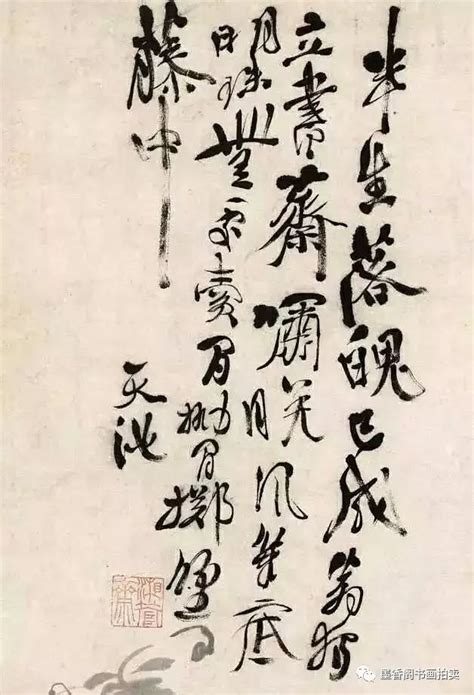 半生落魄已成翁獨
立書齋嘯晚風筆底
明珠無處賣閒拋閒擲野
藤中
天池
湘管齋
墨香阁书画拍卖